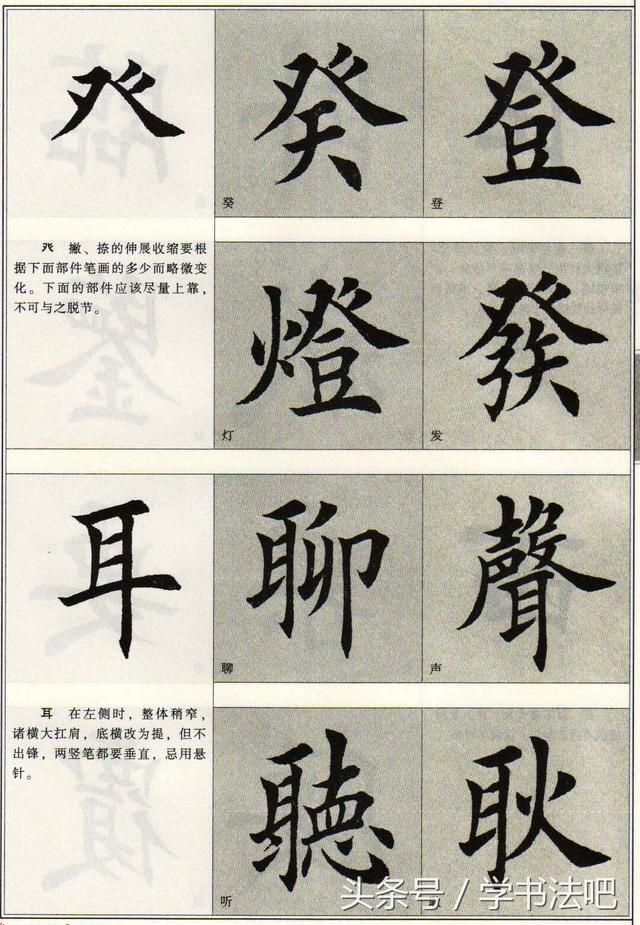 癶 癸 登
癸 登
癶 撇、捺的伸展收缩要根
据下面部件笔画的多少而略微变
化。下面的部件应该尽量上靠，
不可与之脱节。
燈 發
灯 发
耳 聊 聲
聊 声
耳 在左侧时，整体稍窄，
诸横大扛肩，底横改为提，但不
出锋，两竖笔都要垂直，忌用悬
针。
聽 耿
听
头条号／学书法吧